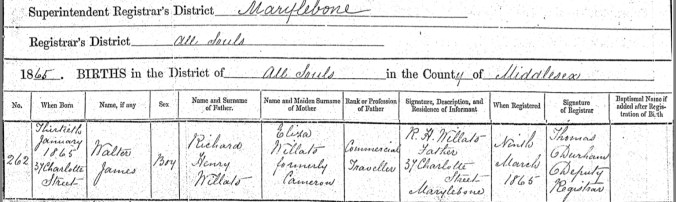 Superintendent Registrar's District Marylebone
Registrar's District All Souls
1865. BIRTHS in the District of All Souls in the County of Middlesex
No. When Born Name, if any Sex Name and Surname of Father. Name and Maiden Surname of Mother Rank or Profession of Father Signature, Description, and Residence of Informant When Registered Signature of Registrar Baptismal Name if added after Registration of Birth
262
Thirtieth
January
1865
37 Charlotte
Street
Walter
James
Boy
Richard
Henry
Willats
Eliza
Willats
formerly
Cameron
Commercial
Traveller
R. H. Willats
Father
37 Charlotte
Street
Marylebone
Ninth
March
1865
Thomas
Durham
Deputy
Registrar